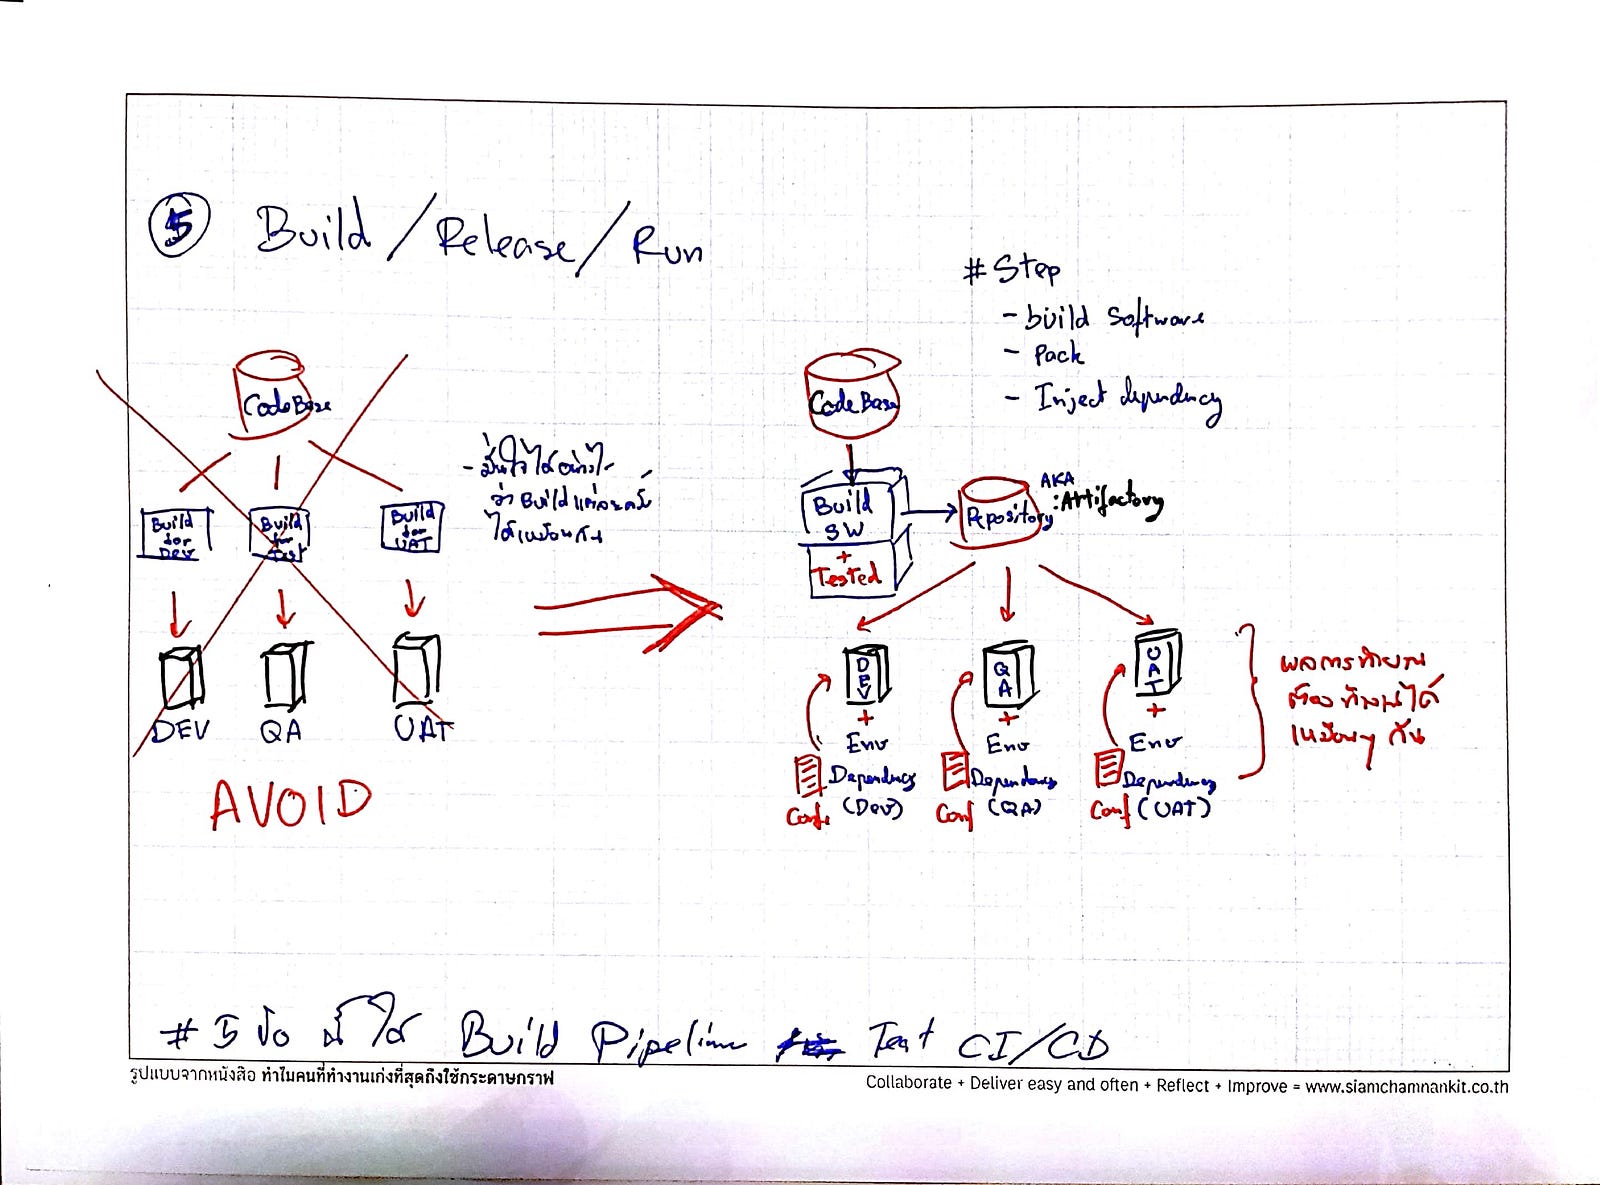 5 Build/Release/Run
# Step
- build software
- Pack
- Inject dependency
CodeBase
Build for Dev
Build for Test
Build for UAT
- มั่นใจได้อย่างไร
ว่า Build แต่ละครั้ง
ได้เหมือนกัน
DEV
QA
UAT
AVOID
CodeBase
Build
SW
+
Tested
Repository
AKA
: Artifactory
DEV
+
Env
Dependency
(Dev)
Conf
QA
+
Env
Dependency
(QA)
Conf
UAT
+
Env
Dependency
(UAT)
Conf
ผลการทำงาน
ต้องทำงานได้
เหมือนๆ กัน
# 5 ข้อ นี้ ได้ Build Pipeline Test CI/CD
รูปแบบจากหนังสือ ทำไมคนที่ทำงานเก่งที่สุดถึงใช้กระดาษกราฟ
Collaborate + Deliver easy and often + Reflect + Improve = www.siamchamnankit.co.th